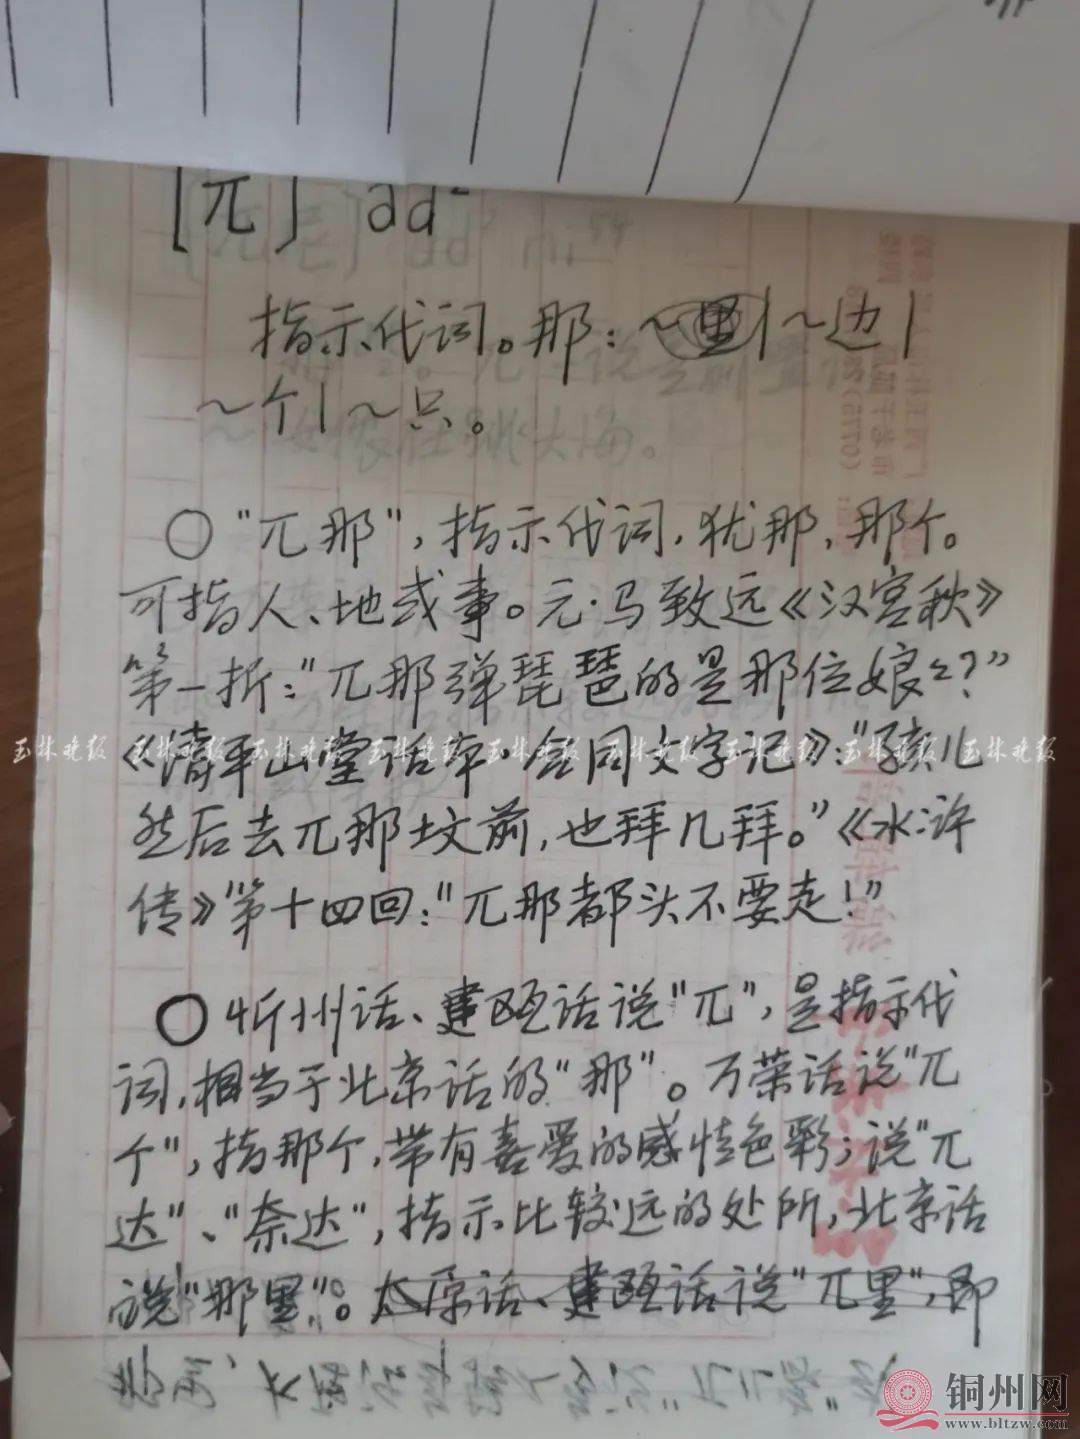 [兀] ad²
指示代词。那：～里|～边|
～个|～只。
○“兀那”，指示代词，犹那，那个。
可指人、地或事。元·马致远《汉宫秋》
第一折：“兀那弹琵琶的是那位娘々？”
《清平山堂话本·合同文字记》：“孩儿
然后去兀那坟前，也拜几拜。”《水浒
传》第十四回：“兀那都头不要走！”
○忻州话、建瓯话说“兀”，是指示代
词，相当于北京话的“那”。万荣话说“兀
个”，指那个，带有喜爱的感情色彩；说“兀
达”、“奈达”，指示比较远的处所，北京话
说“那里”。太原话、建瓯话说“兀里”，即
玉林晚报 玉林晚报 玉林晚报 玉林晚报 玉林晚报 玉林晚报 玉林晚报 玉林晚报 玉林晚报
铜州网
www.bltzw.com